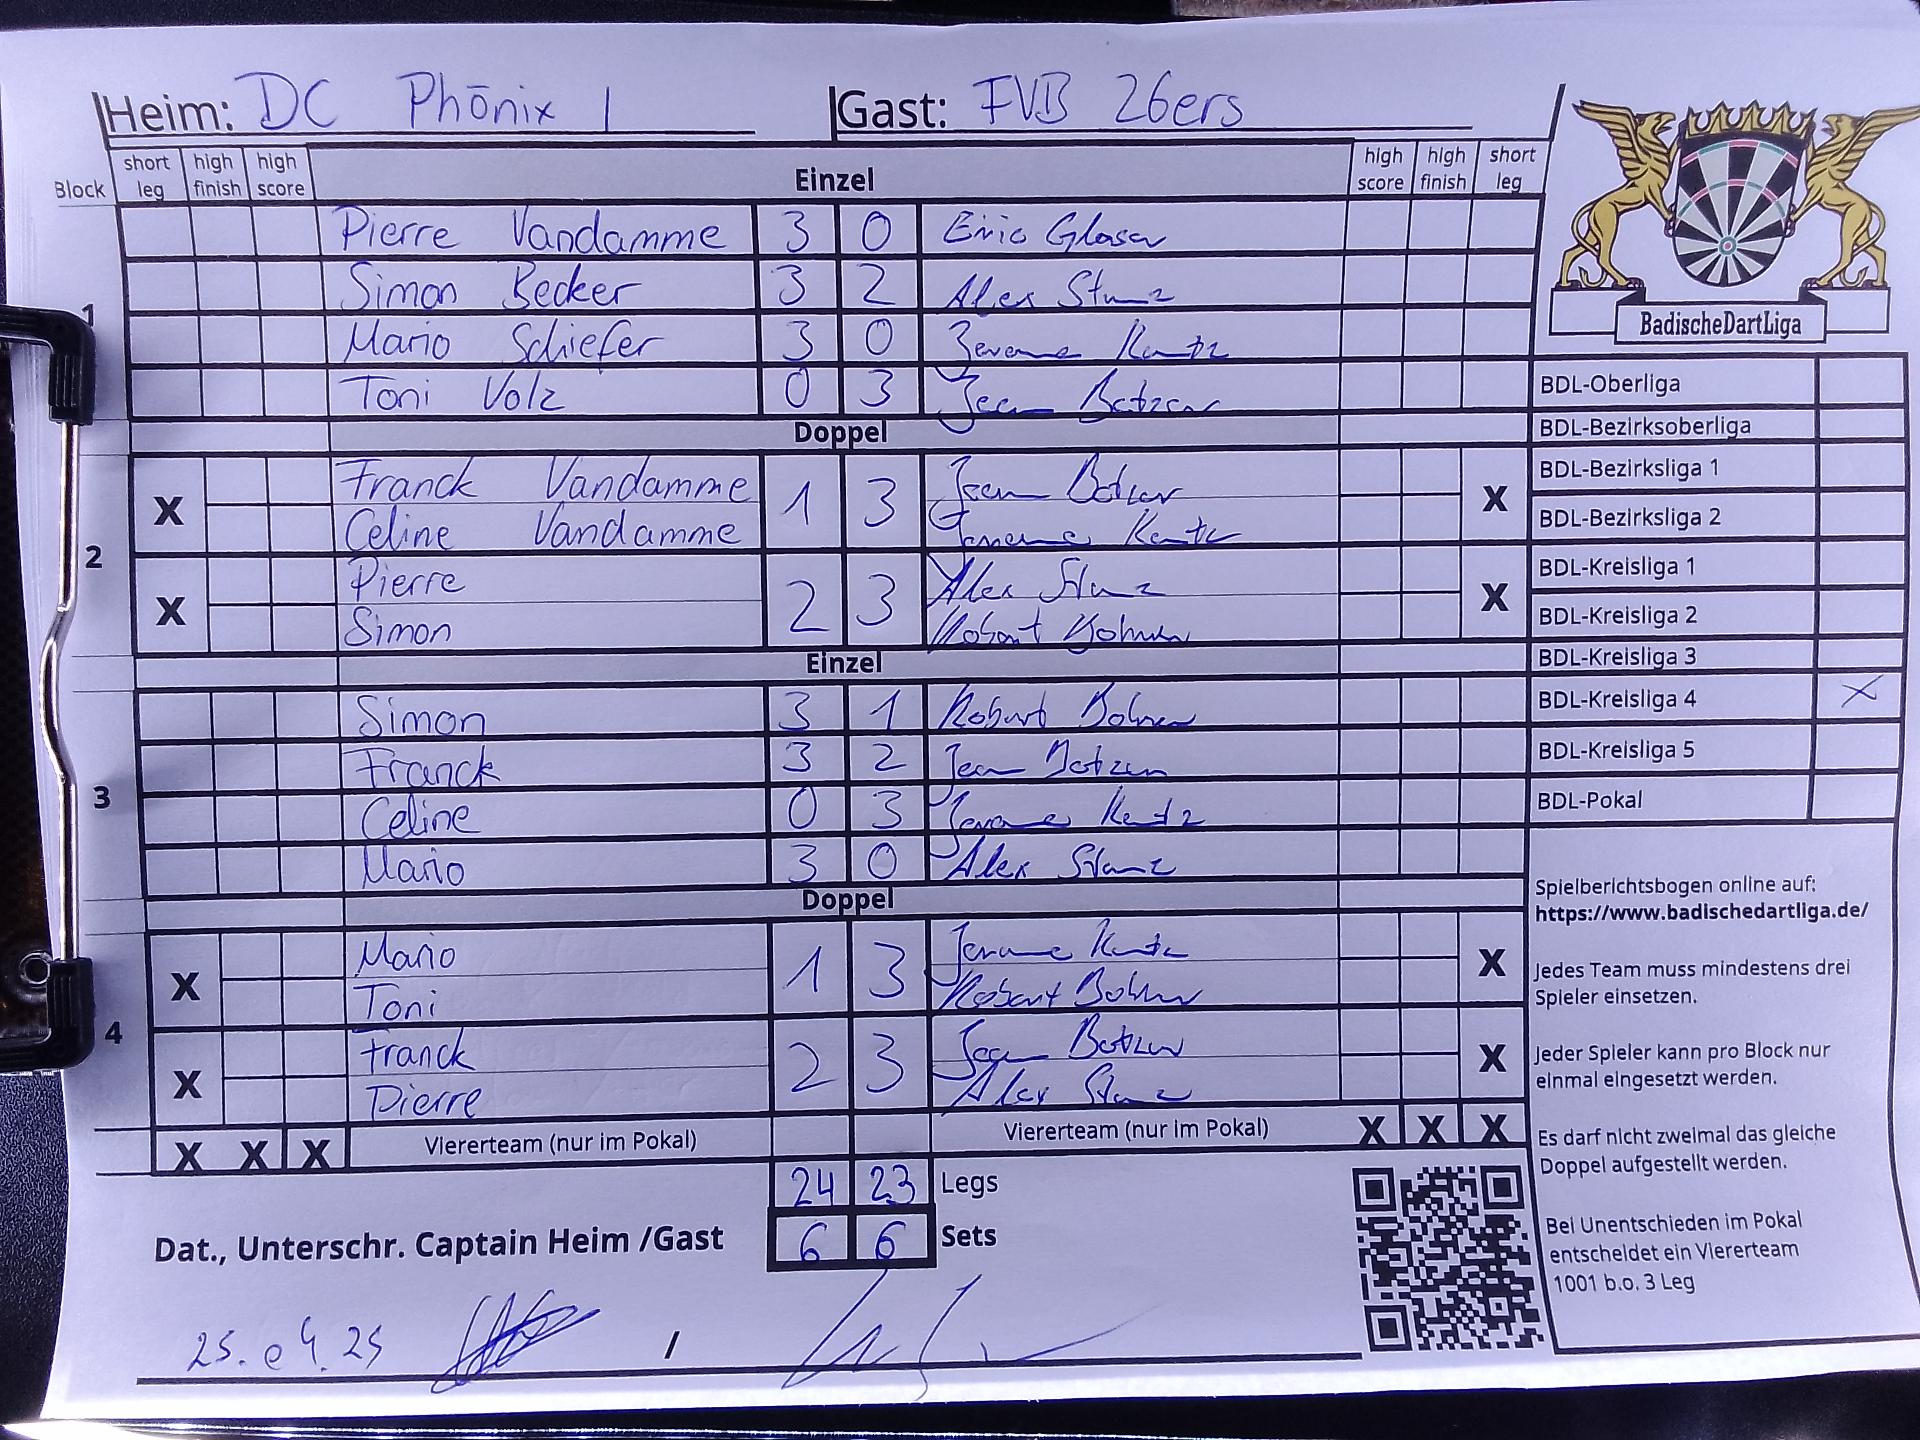 Heim: DC Phönix 1 Gast: FVB 26ers
Block short leg high finish high score Einzel high score high finish short leg
1
Pierre Vandamme 3 0 Eric Glaser
Simon Becker 3 2 Alex Stunz
Mario Schiefer 3 0 Jerome Kantz
Toni Volz 0 3 Jean Batzer
Doppel
2
X Franck Vandamme 1 3 Jean Batzer X
Celine Vandamme Jerome Kantz
X Pierre 2 3 Alex Stunz X
Simon Robert
Einzel
3
Simon 3 1 Robert
Franck 3 2 Jean Batzer
Celine 0 3 Jerome Kantz
Mario 3 0 Alex Stunz
Doppel
4
X Mario 1 3 Jerome Kantz X
Toni Robert
X Franck 2 3 Jean Batzer X
Pierre Alex Stunz
X X X Viererteam (nur im Pokal) Viererteam (nur im Pokal) X X X
24 23 Legs
Dat., Unterschr. Captain Heim /Gast 6 6 Sets
25.04.25 /
BadischeDartLiga
BDL-Oberliga
BDL-Bezirksoberliga
BDL-Bezirksliga 1
BDL-Bezirksliga 2
BDL-Kreisliga 1
BDL-Kreisliga 2
BDL-Kreisliga 3
BDL-Kreisliga 4 X
BDL-Kreisliga 5
BDL-Pokal
Spielberichtsbogen online auf:
https://www.badischedartliga.de/
Jedes Team muss mindestens drei
Spieler einsetzen.
Jeder Spieler kann pro Block nur
einmal eingesetzt werden.
Es darf nicht zweimal das gleiche
Doppel aufgestellt werden.
Bei Unentschieden im Pokal
entscheidet ein Viererteam
1001 b.o. 3 Leg